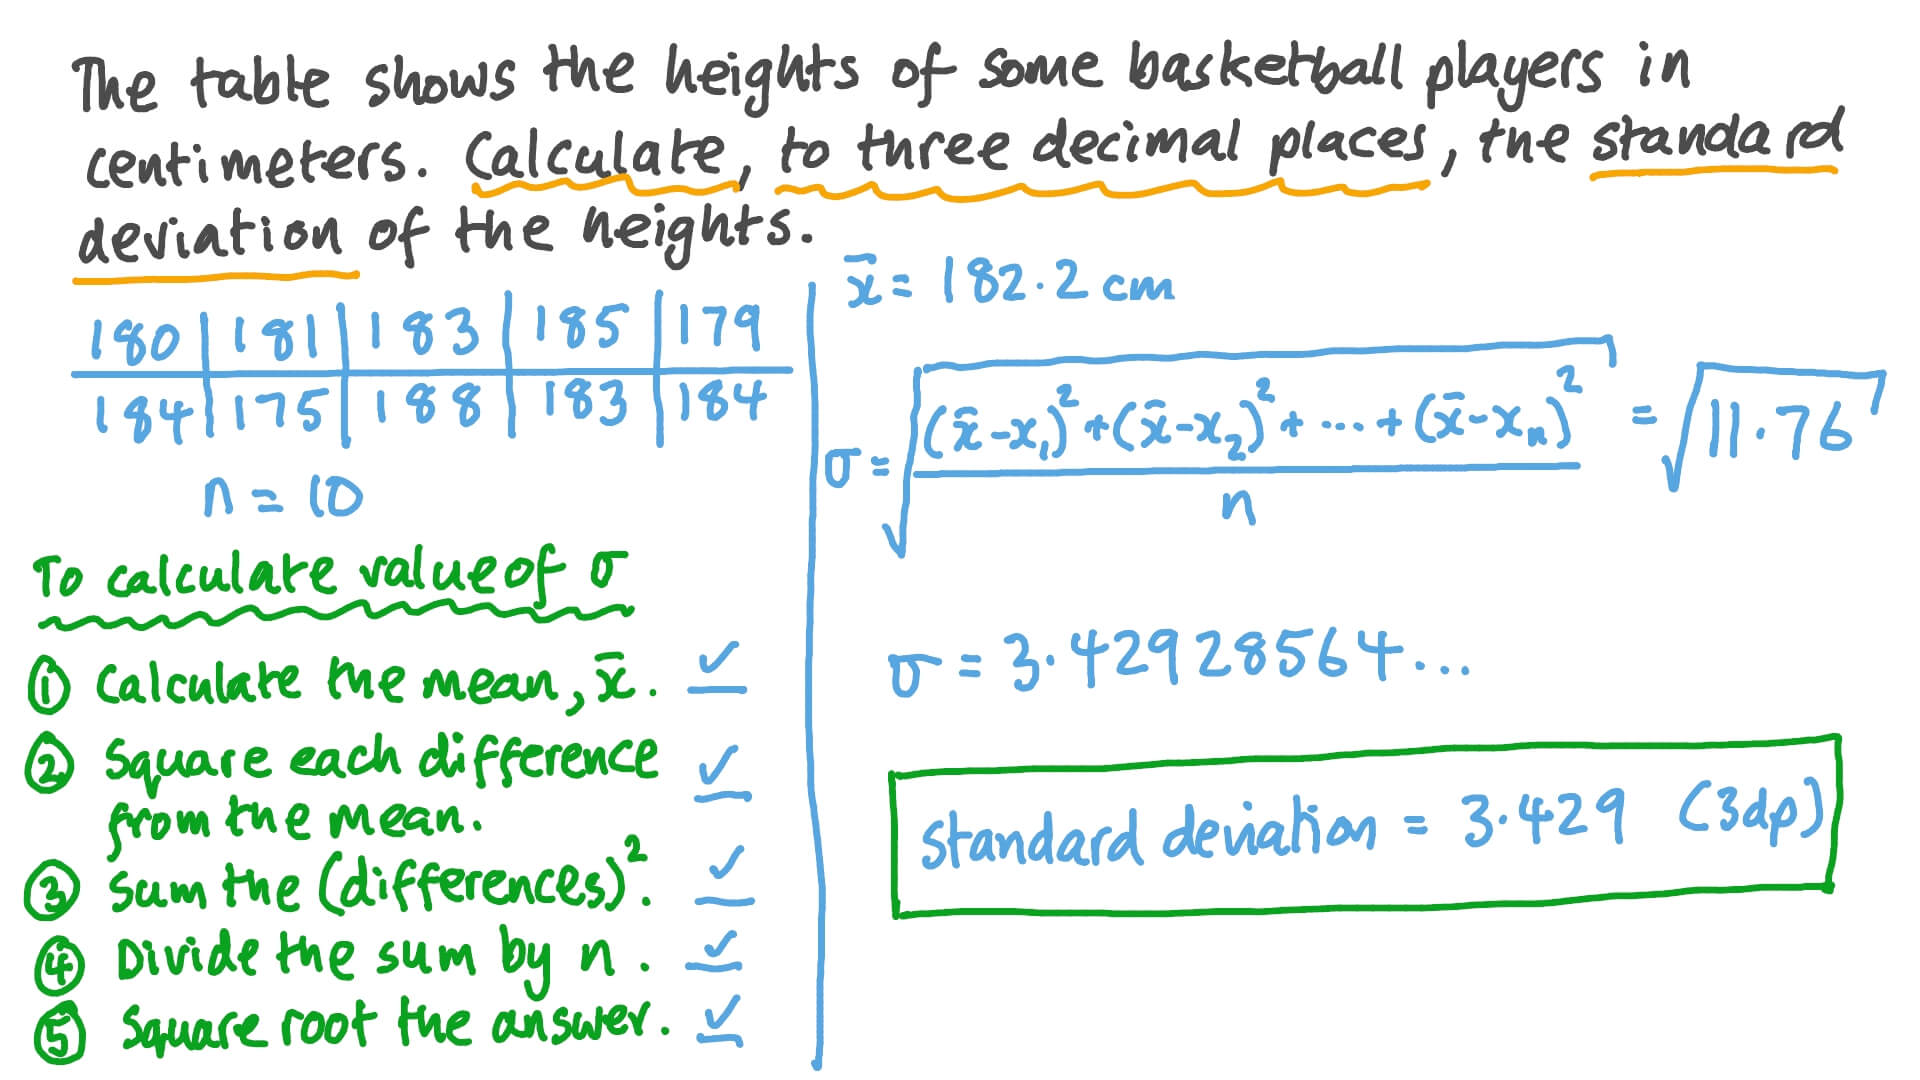 The table shows the heights of some basketball players in
centimeters. Calculate, to three decimal places, the standard
deviation of the heights.
180 | 181 | 183 | 185 | 179
184 | 175 | 188 | 183 | 184
n = 10
To calculate value of σ
① Calculate the mean, x̄. ✓
② Square each difference ✓
from the mean.
③ Sum the (differences)². ✓
④ Divide the sum by n. ✓
⑤ Square root the answer. ✓
x̄ = 182.2 cm
σ = √((x̄-x₁)²+(x̄-x₂)²+...+(x̄-xₙ)² / n) = √11.76
σ = 3.42928564...
standard deviation = 3.429 (3dp)